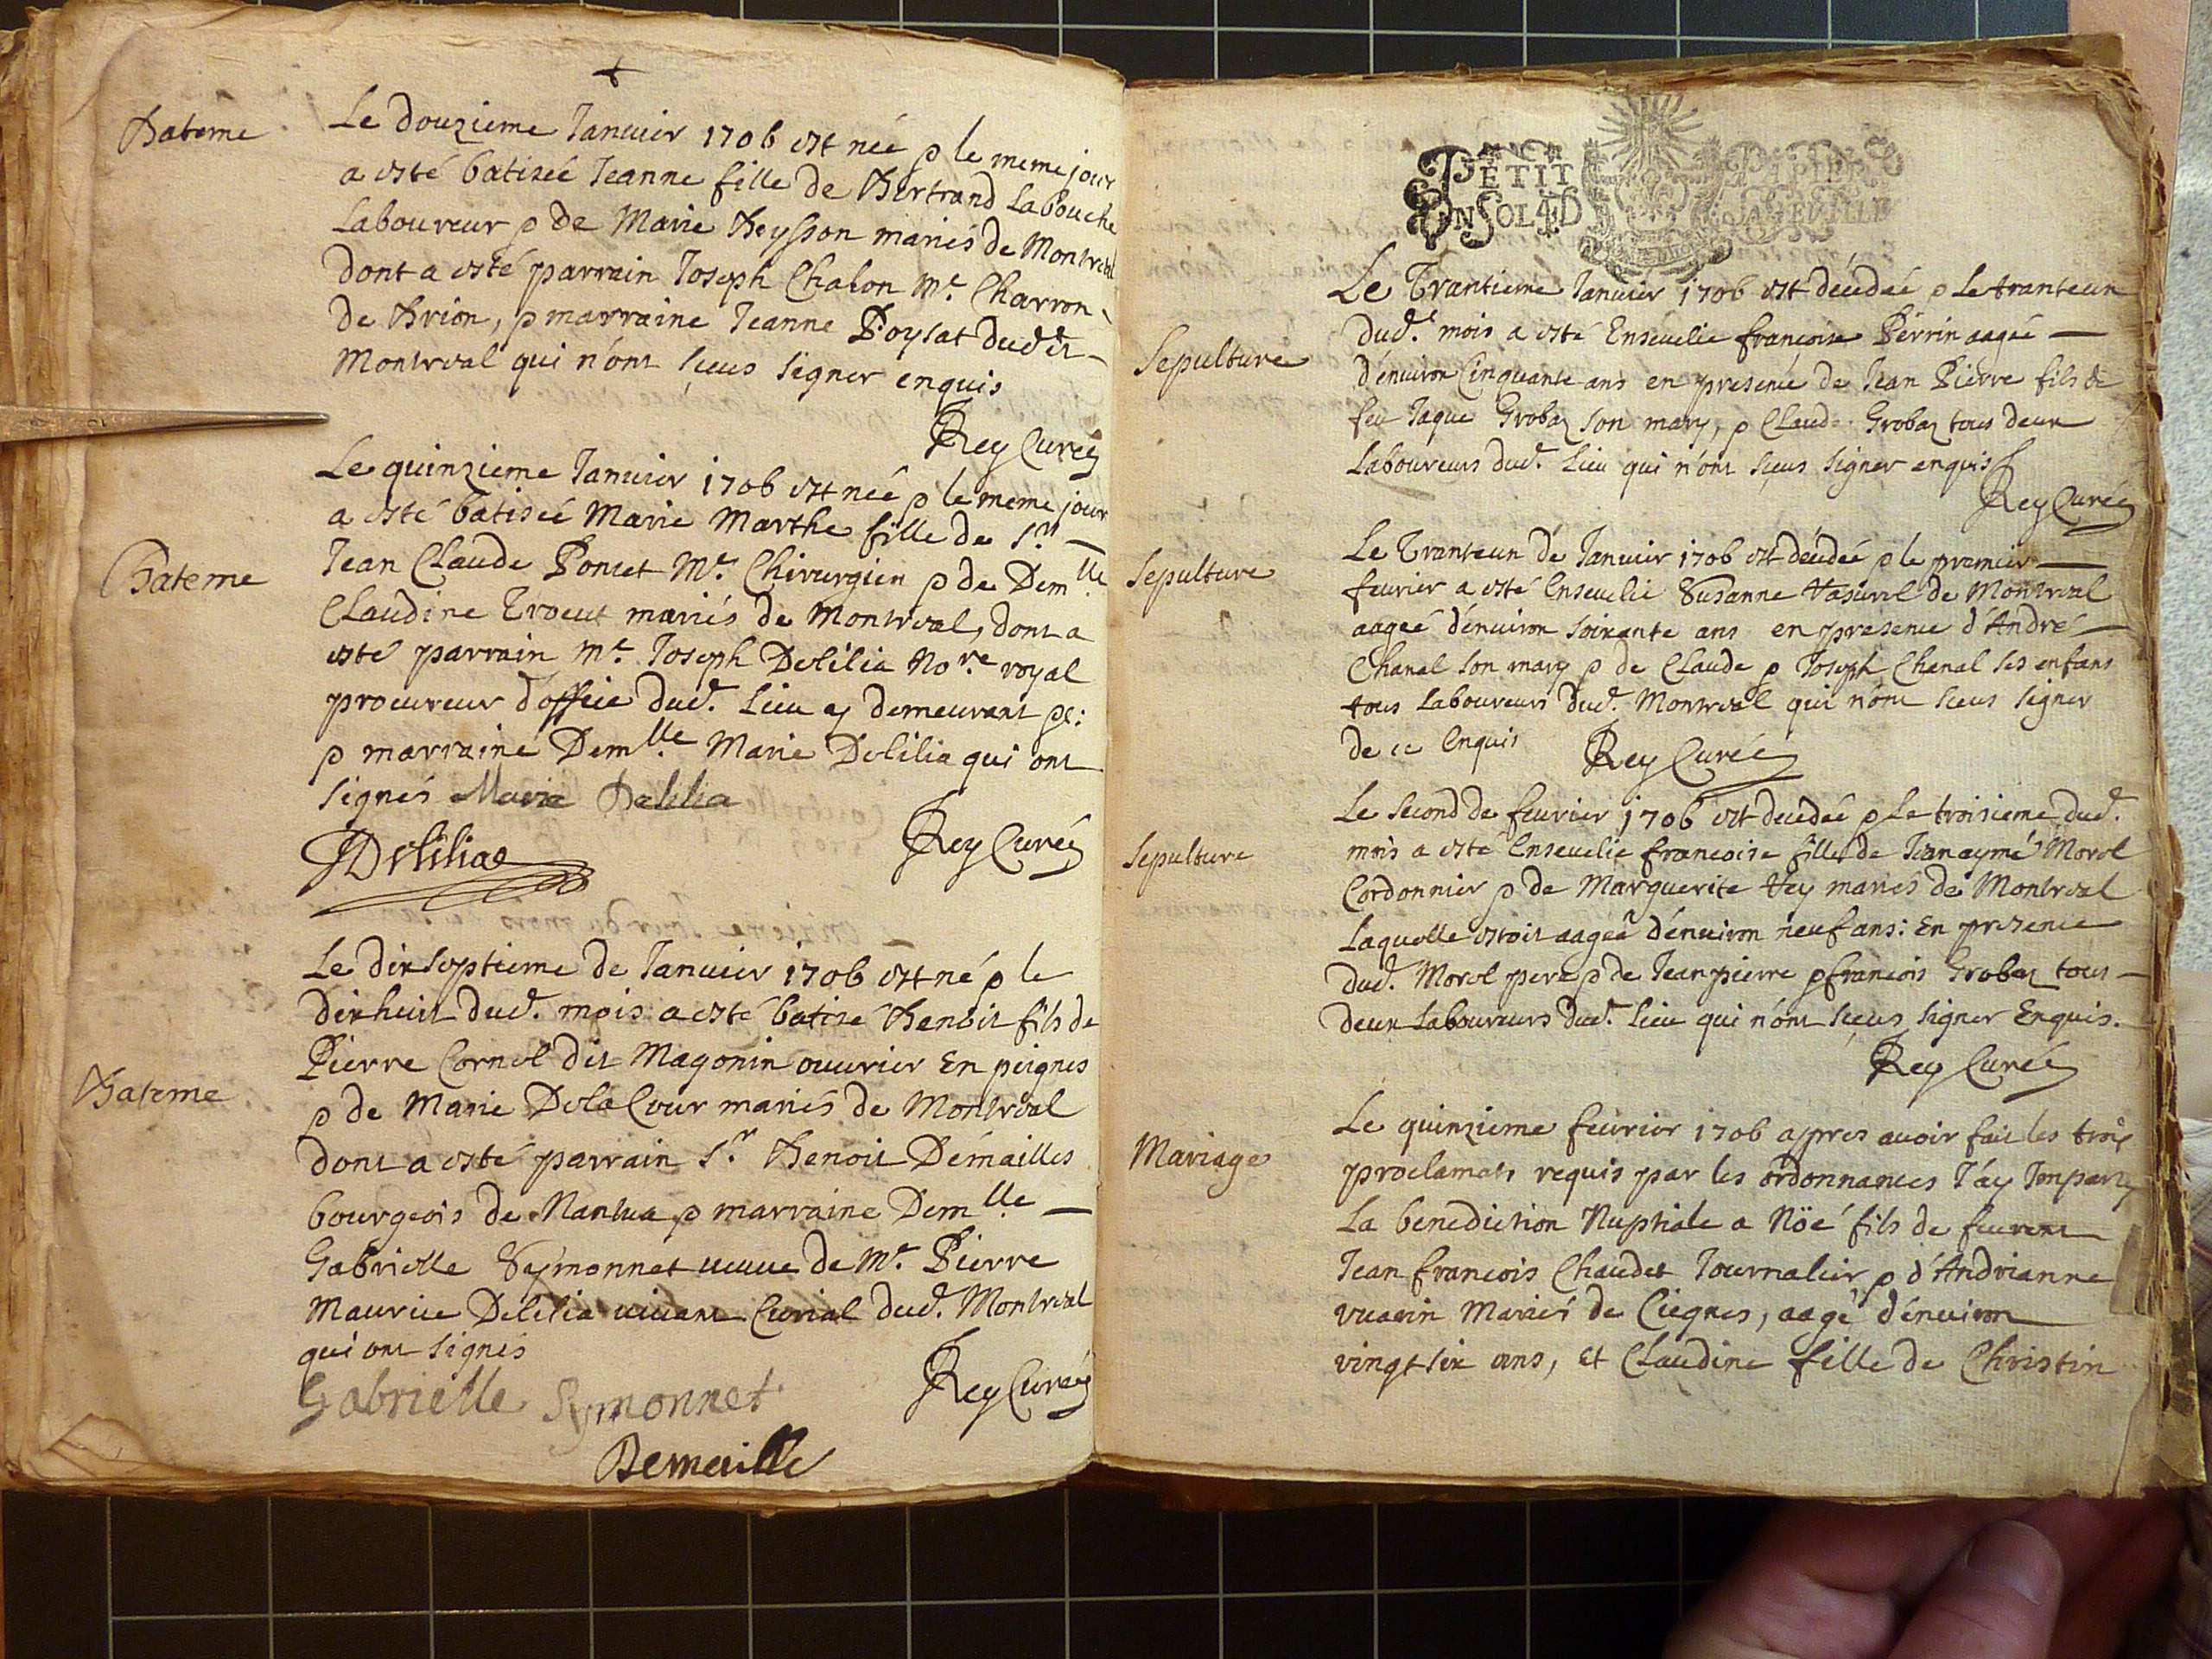 Bateme
Le douzieme Januier 1706 est née & le meme jour
a esté batiseé Jeanne fille de Bertrand Labouche
Laboureur & de Marie Beysson mariés de Montreal
dont a esté parrain Joseph Chalon Me. Charron
de Brion, & marraine Jeanne Poysat dudit
Montreal qui n'ont sçeus signer enquis
Rey Curé
Bateme
Le quinzieme Januier 1706 est née & le meme jour
a esté batiseé Marie Marthe fille de Sr.
Jean Claude Poncet Me. Chirurgien & de Demlle
Claudine mariés de Montreal, dont a
esté parrain Me. Joseph Delilia Nore royal
procureur d'office dud. Lieu y demeurant
& marraine Demlle Marie Delilia qui ont
signés Marie Delilia
JDelilia
Rey Curé
Bateme
Le dixseptieme de Januier 1706 est né & le
dixhuit dud. mois a esté batisé Benoit fils de
Pierre Cornet dit Magonin ouurier En peignes
& de Marie Dela Cour mariés de Montreal
dont a esté parrain Sr. Benoit Démailles
bourgeois de Nantua, & marraine Demlle
Gabrielle Symonnet ueuue de Me. Pierre
Maurice Delilia uiuant Curial dud. Montreal
qui ont signés
Gabrielle Symonnet
Rey Curé
Demaille
PETIT PAPIER
UN SOL 4 D LA FEUILLE
Sepulture
Le Trantieme Januier 1706 est décedeé & Le tranteun
dud. mois a esté Enseuelie françoise Perrin aageé
d'énuiron Cinquante ans en presence de Jean Pierre fils de
feu Jaque Grobaz son mary, & Claude Grobaz tous deux
Laboureurs dud. Lieu qui n'ont sçeus signer enquis
Rey Curé
Sepulture
Le Tranteun de Januier 1706 est décedeé & le premier
feurier a esté Enseuelie Susanne de Montreal
aageé d'énuiron soixante ans en presence d'André
Chanal son mary & de Claude & Joseph Chanal ses enfans
tous Laboureurs dud. Montreal qui n'ont sceus signer
de ce Enquis
Rey Curé
Sepulture
Le second de feurier 1706 est decedeé & Le troisieme dud.
mois a esté Enseuelie francoise fille de Jean aymé Morel
Cordonnier & de Marguerite Vey mariés de Montreal
Laquelle estoit aageé d'énuiron neuf ans: En presence
dud. Morel pere & de Jean pierre & francois Grobaz tous
deux Laboureurs dud. Lieu qui n'ont sçeus signer Enquis.
Rey Curé
Mariage
Le quinzieme feurier 1706 apres auoir fait les trois
proclamats requis par les ordonnances J'ay Imparty
La benediction Nuptiale a Nöé fils de feurent
Jean francois Chaudet Journalier & d'Andrianne
vuarin Mariés de Ciegnes, aagé d'énuiron
vingt six ans, et Claudine fille de Christin